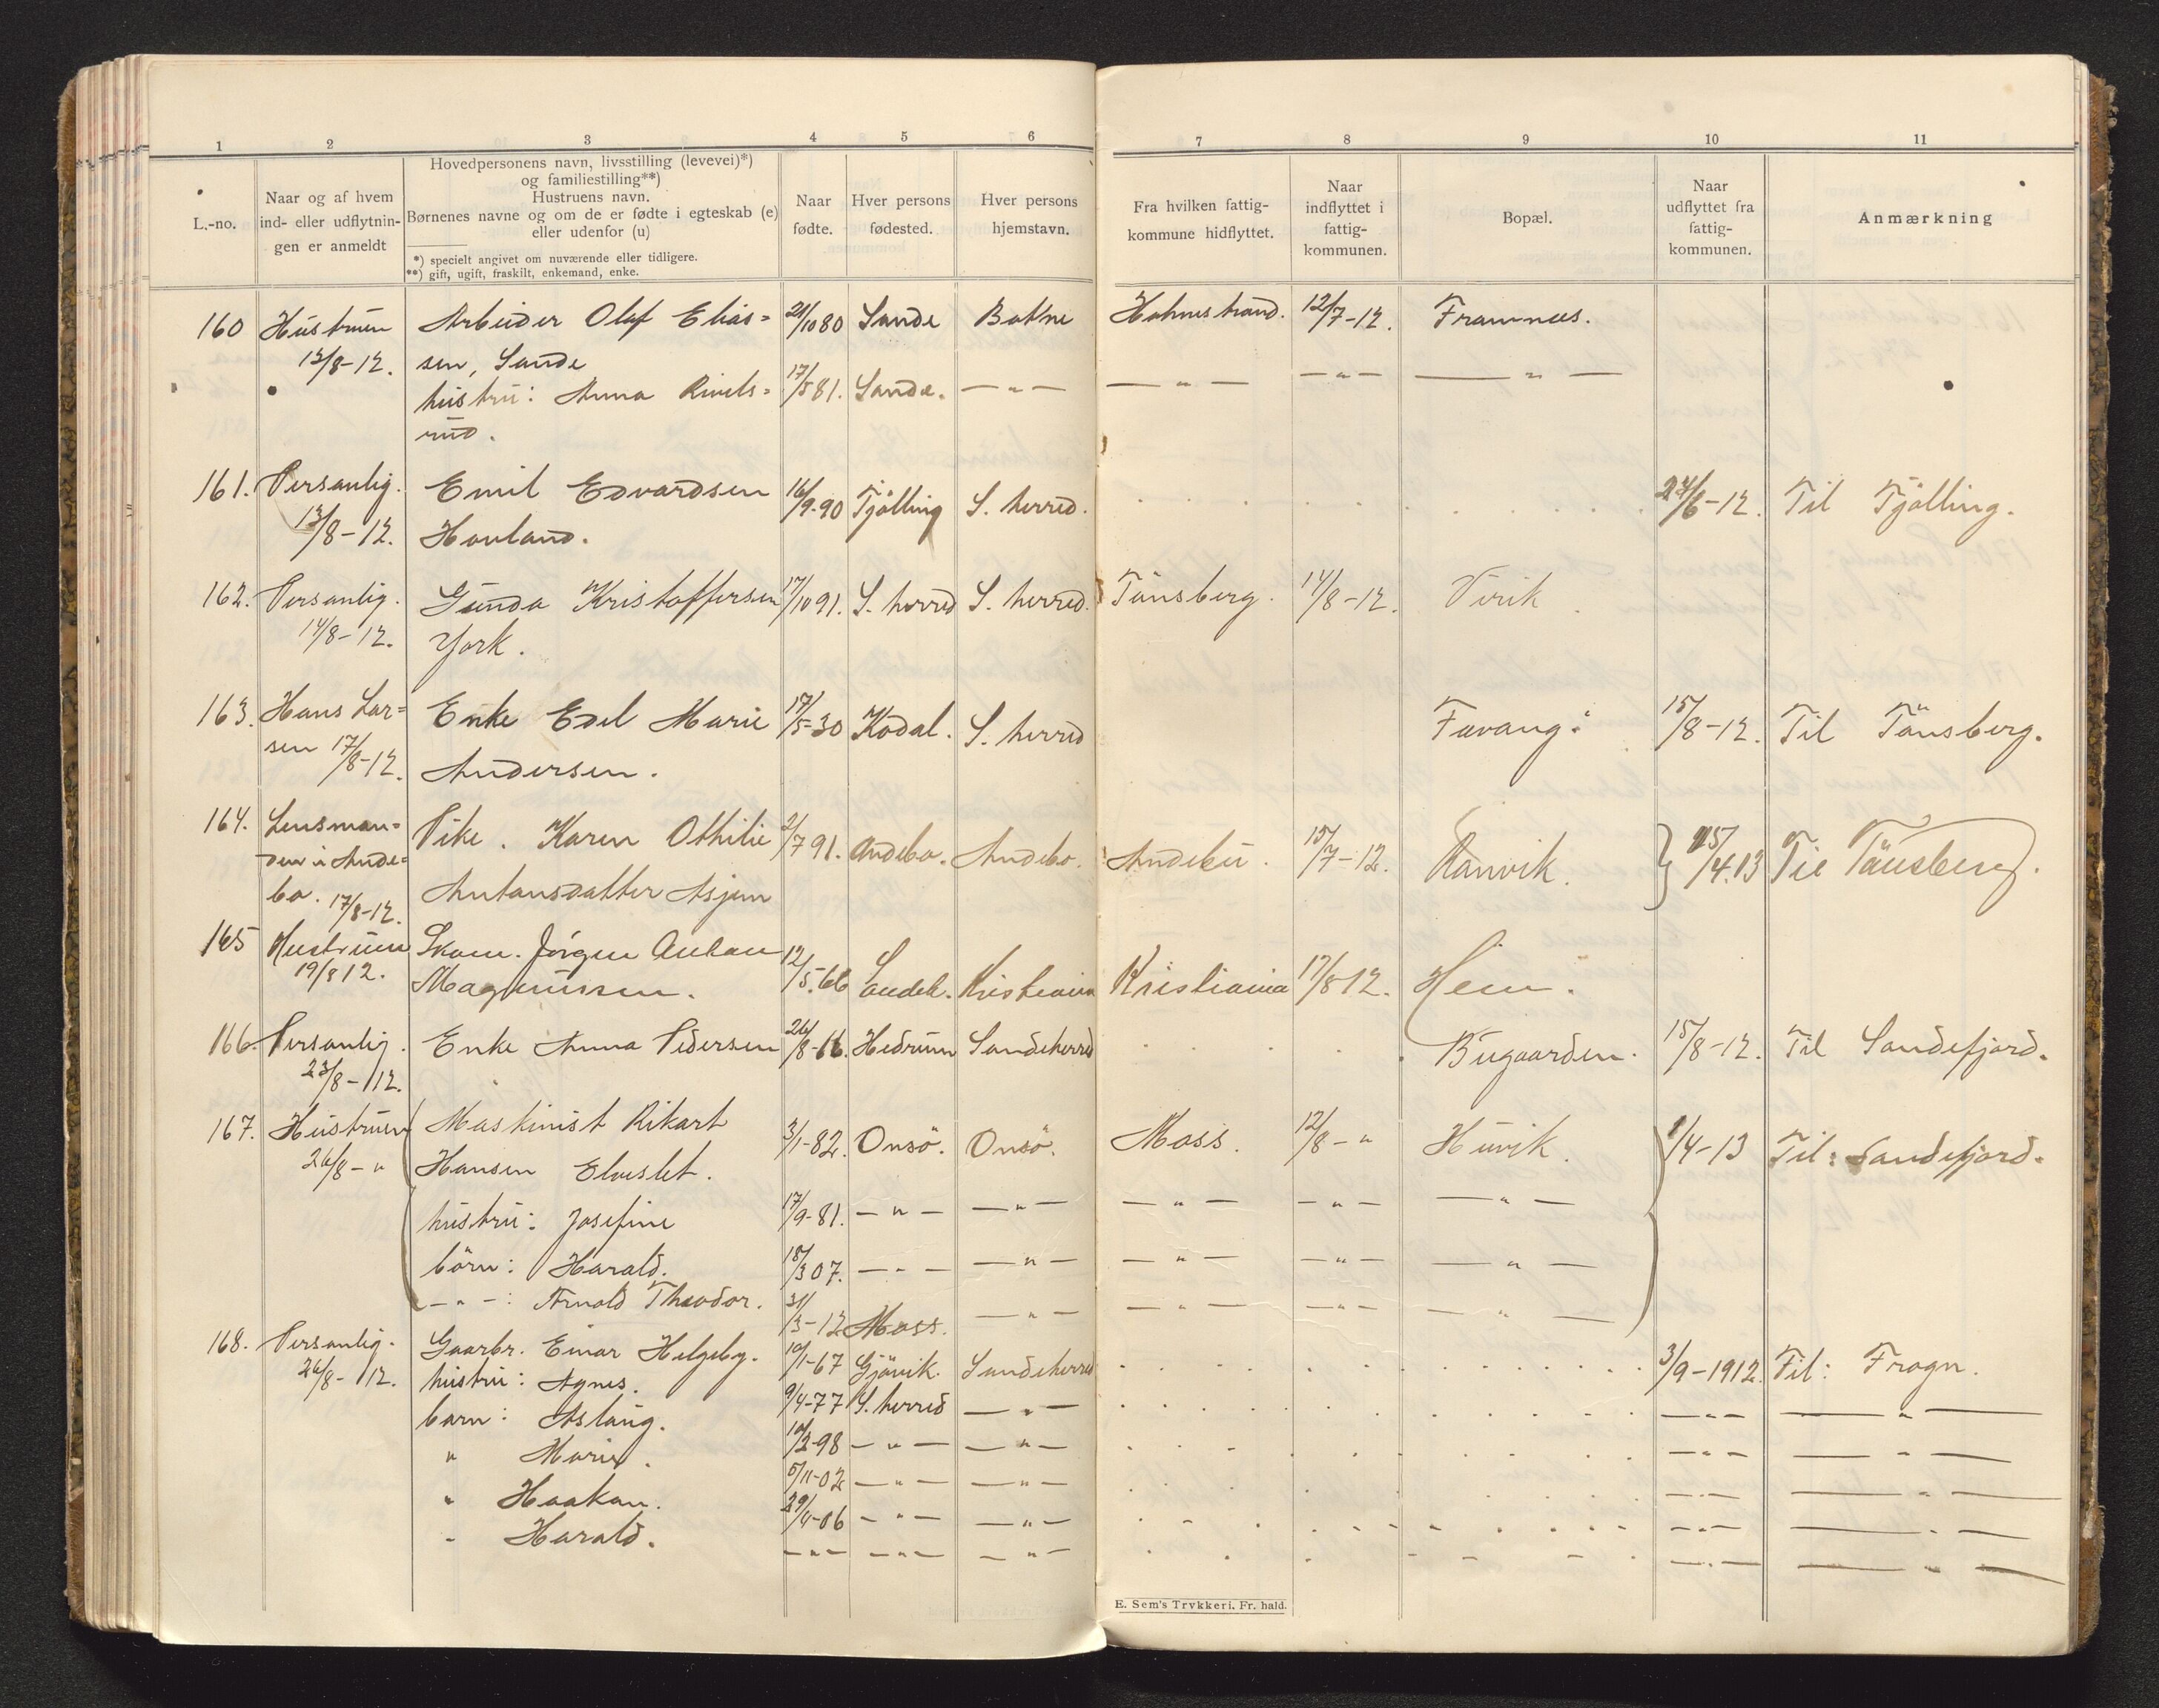 1 2 3 4 5 6 7 8 9 10 11
L.-no.
Naar og af hvem
ind- eller udflytnin-
gen er anmeldt
Hovedpersonens navn, livsstilling (levevei)*)
og familiestilling**)
Hustruens navn.
Børnenes navne og om de er fødte i egteskab (e)
eller udenfor (u)
*) specielt angivet om nuværende eller tidligere.
**) gift, ugift, fraskilt, enkemand, enke.
Naar
fødte.
Hver persons
fødested.
Hver persons
hjemstavn.
Fra hvilken fattig-
kommune hidflyttet.
Naar
indflyttet i
fattig-
kommunen.
Bopæl.
Naar
udflyttet fra
fattig-
kommunen.
Anmærkning
160 Hustruen Arbeider Olaf Elias= /10 80 Sande Botne Holmestrand. 12/7-12. Framnæs.
13/8-12. sen, Sande
hustru: Anna Rivels= 17/5 81. Sande. —"— —"— —"— —"—
rud.
161. Personlig. Emil Edvardsen 16/9-90 Tjölling S. herred. 24/6-12. Til Tjölling.
13/8-12. Hovland.
162. Personlig. Gunda Kristoffersen 17/10 91. S. herred S. herred. Tönsberg. 14/8-12. Virik
14/8-12. York.
163. Hans Lar= Enke Edel Marie 17/5-30 Kodal. S. herred Favang. 15/8-12. Til Tönsberg.
sen 17/8-12. Andersen.
164. Lensman= Pike. Karen Othilie 2/7 91. Andebo. Andebo. Andebu. 15/7-12. Ranvik. 15/4.13 Til Tönsberg.
den i Ande=
bo. 17/8-12. Antonsdatter Asjem
165 Hustruen Skom. Jörgen Anton 12/5.66 Sandeh. Kristiania Kristiania 17/8 12. Hem.
19/8 12. Magnussen.
166. Personlig. Enke Anna Pedersen 26/8-66. Hedrum Sandeherred Bugaarden. 15/8-12. Til Sandefjord.
23/8-12.
167. Hustruen Maskinist Rikart 3/1-82. Onsö. Onsö. Moss. 12/8-" Huvik. 1/4-13 Til: Sandefjord.
26/8-" Hansen Elveslet.
hustru: Josefine 17/9-81. —"— —"— —"— —"— —"—
börn: Harald. 18/3 07. —"— —"— —"— —"— —"—
—"—: Arnold Theodor. 31/3-12 Moss. —"— —"— —"— —"—
168. Personlig. Gaarbr. Einar Helgeby. 19/1-67 Gjövik. Sandeherred 3/9-1912. Til: Frogn.
26/8-12. hustru: Agnes. 9/4-77 S. herred —"— —"— —"—
barn: Aslaug. 10/2-98 —"— —"— —"— —"—
" Marie. 5/11-02 —"— —"— —"— —"—
" Haakon. 29/4-06 —"— —"— —"— —"—
" Harald. —"— —"— —"— —"— —"—
E. Sem's Trykkeri. Fr. hald.